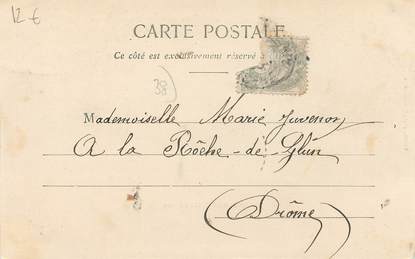 12 €
CARTE POSTALE
Ce côté est exclusivement réservé à
38
Mademoiselle Marie Juvenon
A la Rôche-de-Glun
(Drôme)